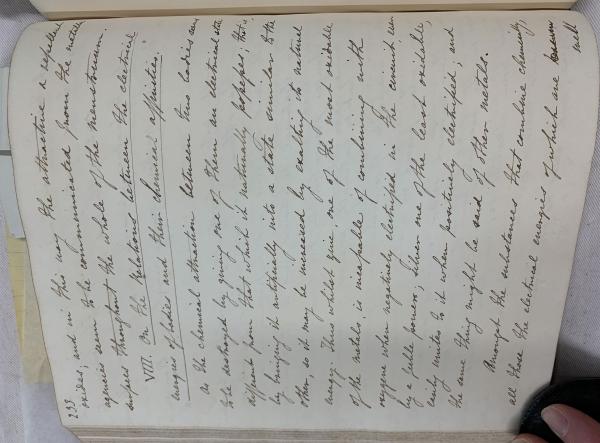 293
oxides; and in this way the attractive & repellent
agencies seem to be communicated from the metallic
surfaces throughout the whole of the menstruum.
VIII. On the Relations between the electrical
energies of bodies and their chemical affinities.
As the chemical attraction between two bodies seems
to be destroyed by giving one of them an electrical state
different from that which it naturally possesses; that is
by bringing it artificially into a state similar to the
other, so it may be increased by exalting its natural
energy. Thus whilst zinc one of the most oxidable
of the metals, is incapable of combining with
oxygene when negatively electrified in the circuit even
by a feeble power; silver one of the least oxidable,
easily unites to it when positively electrified; and
the same thing might be said of other metals.
Amongst the substances that combine chemically,
all those the electrical energies of which are known
well